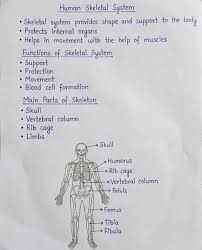 Human Skeletal System
• Skeletal system provides shape and support to the body
• Protects internal organs
• Helps in movement with the help of muscles
Functions of Skeletal System
• Support
• Protection
• Movement
• Blood cell formation
Main Parts of Skeleton
• Skull
• Vertebral column
• Rib cage
• Limbs
Skull
Humerus
Rib cage
Vertebral column
Pelvis
Femur
Tibia
Fibula